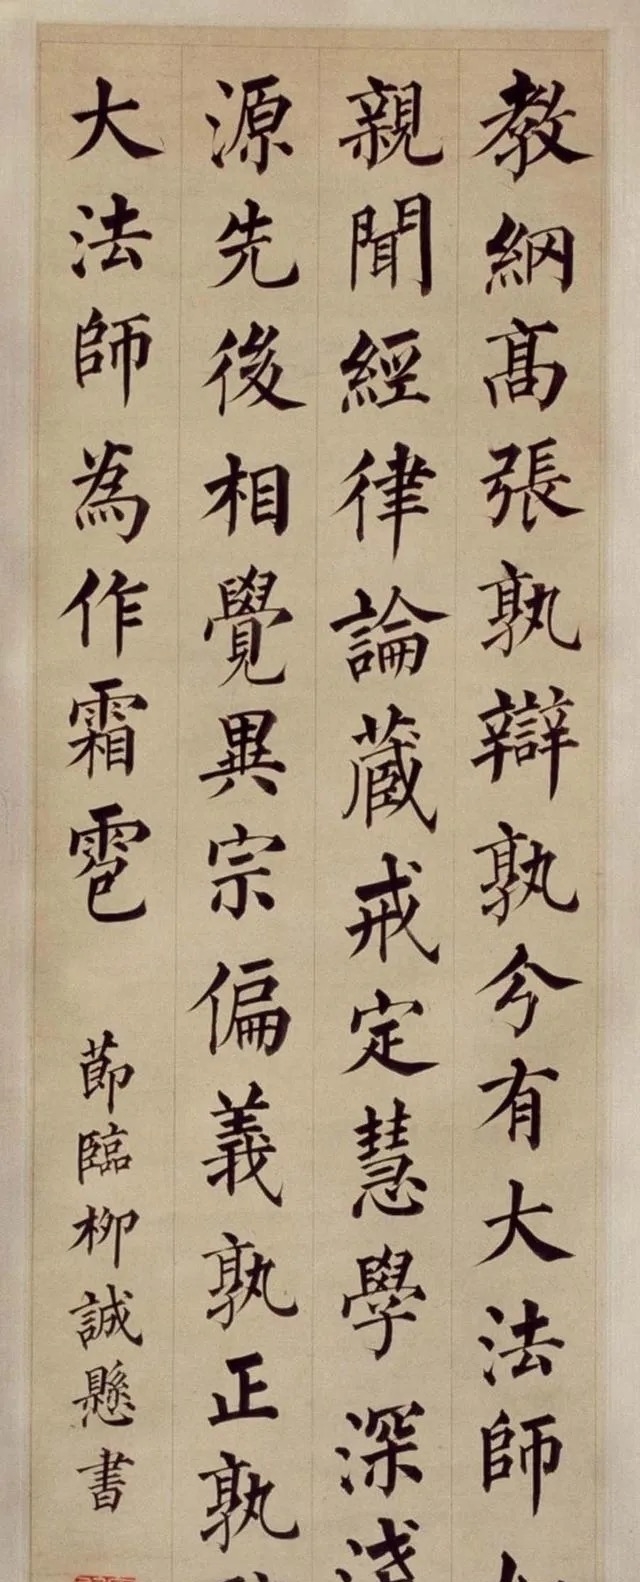 教綱髙張孰辯孰分有大法師
親聞經律論藏戒定慧學深淺
源先後相覺異宗偏義孰正孰
大法師為作霜雹
節臨柳誠懸書